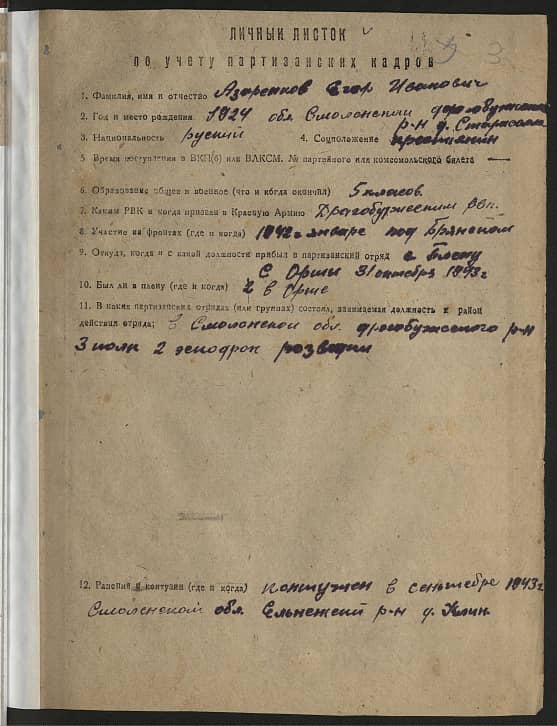 ЛИЧНЫЙ ЛИСТОК
по учету партизанских кадров
3
1. Фамилия, имя и отчество Азаренков Егор Иванович
2. Год и место рождения 1924 обл Смоленской
р-н д.
3. Национальность Руский 4. Соцположение крестиянин
5 Время поступления в ВКП(б) или ВЛКСМ. № партийного или комсомольского билета —
6. Образование общее и военное (что и когда окончил) 5 класов.
7. Каким РВК и когда призван в Красную Армию Дрогобужеским рвк.
8. Участие на фронтах (где и когда) 1942 г январе под Брянском
9. Откуда, когда и с какой должности прибыл в партизанский отряд с Плену
С Орши 31 октября 1943 г
10. Был ли в плену (где и когда) в Орше
11. В каких партизанских отрядах (или группах) состоял, занимаемая должность и район
действия отряда; в Смоленской обл. дрогобужеского р-н
3 полк 2 эскодрон розведки
12. Ранений и контузии (где и когда) контужен в сентебре 1943 г
Смоленском обл. Ельнежский р-н д. Клин.